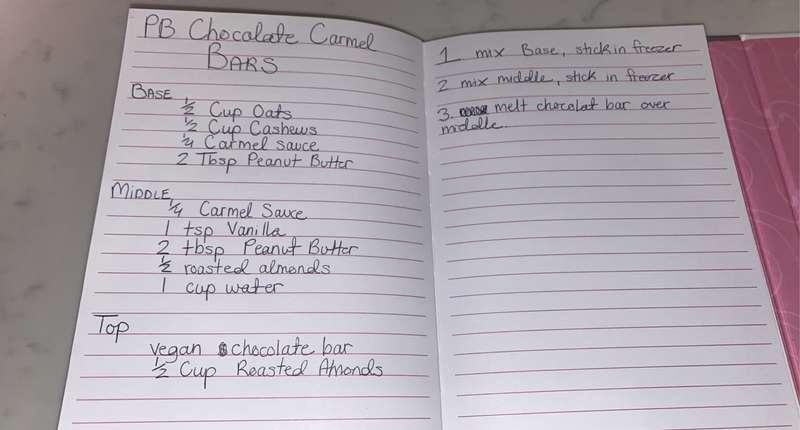 PB Chocolate Carmel
BARS
BASE
1/2 Cup Oats
1/2 Cup Cashews
1/4 Carmel sauce
2 Tbsp Peanut Butter
MIDDLE
1/4 Carmel Sauce
1 tsp Vanilla
2 tbsp Peanut Butter
1/2 roasted almonds
1 cup water
Top
vegan chocolate bar
1/2 Cup Roasted Almonds
1 mix Base, stick in freezer
2 mix middle, stick in freezer
3. melt chocolat bar over
middle.